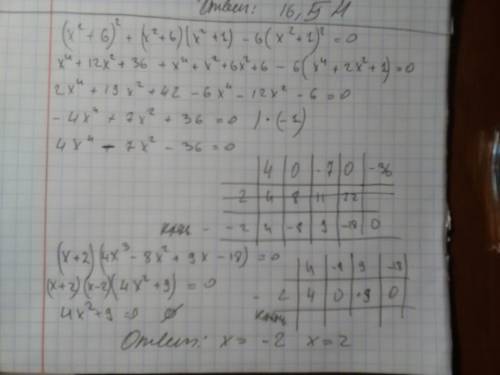 Ответ: 16,5 Н
(x²+6)² + (x²+6)(x²+1) - 6(x²+1)² = 0
x⁴ + 12x² + 36 + x⁴ + x² + 6x² + 6 - 6(x⁴ + 2x² + 1) = 0
2x⁴ + 19x² + 42 - 6x⁴ - 12x² - 6 = 0
-4x⁴ + 7x² + 36 = 0 | · (-1)
4x⁴ - 7x² - 36 = 0
4 0 -7 0 -36
2 4 8 11 22
- 2 4 -8 9 -18 0
(x+2)(4x³ - 8x² + 9x - 18) = 0
4 -8 9 -18
(x+2)(x-2)(4x² + 9) = 0
2 4 0 9 0
4x² + 9 = 0 ∅
Ответ: x = -2 x = 2